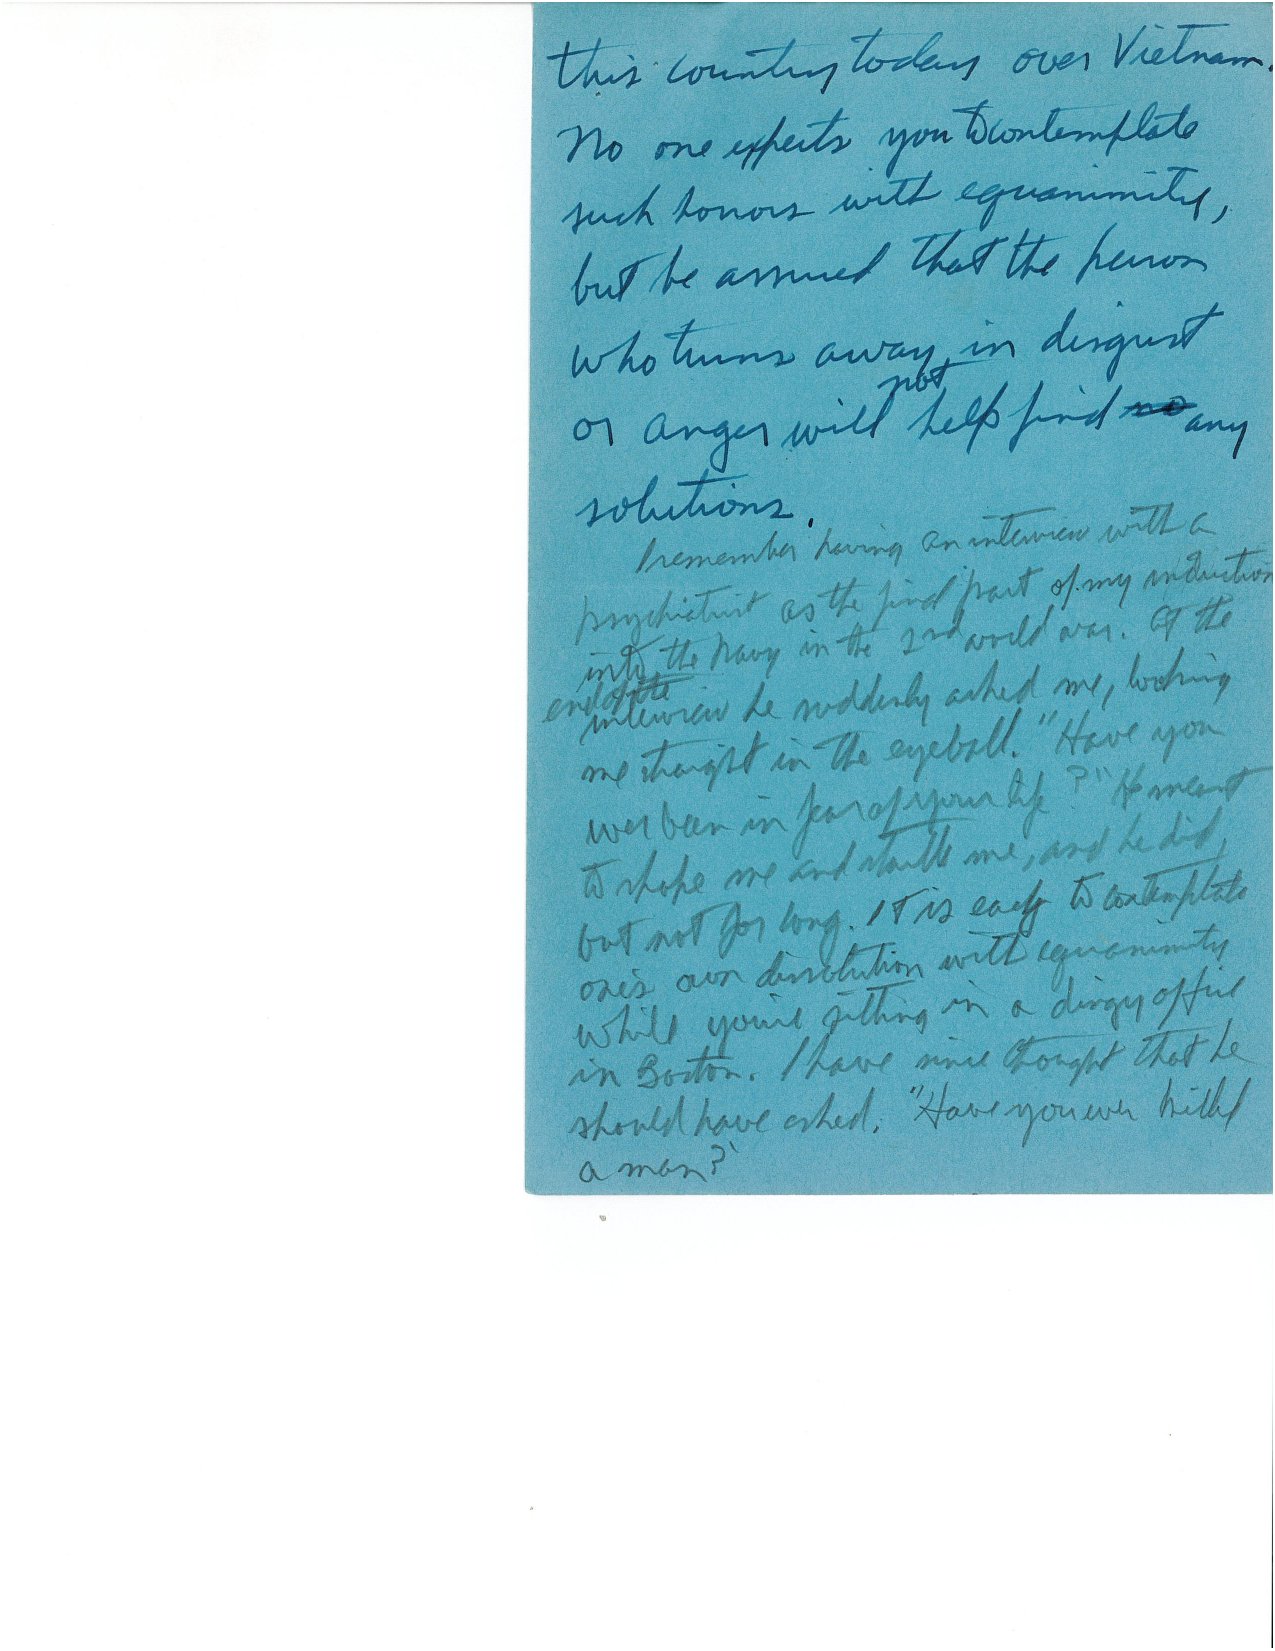 this country today over Vietnam.
No one expects you to contemplate
such horrors with equanimity,
but be assured that the person
who turns away, in disgust
or anger will not help find no any
solutions.
I remember having an interview with a
psychiatrist as the final part of my induction
into the Navy in the 2nd world war. At the
end of the
interview he suddenly asked me, looking
me straight in the eyeball. "Have you
ever been in fear of your life?" He meant
to shape me and startle me, and he did,
but not for long. It is easy to contemplate
one's own dissolution with equanimity
while you're sitting in a dingy office
in Boston. I have since thought that he
should have asked. "Have you ever killed
a man?"